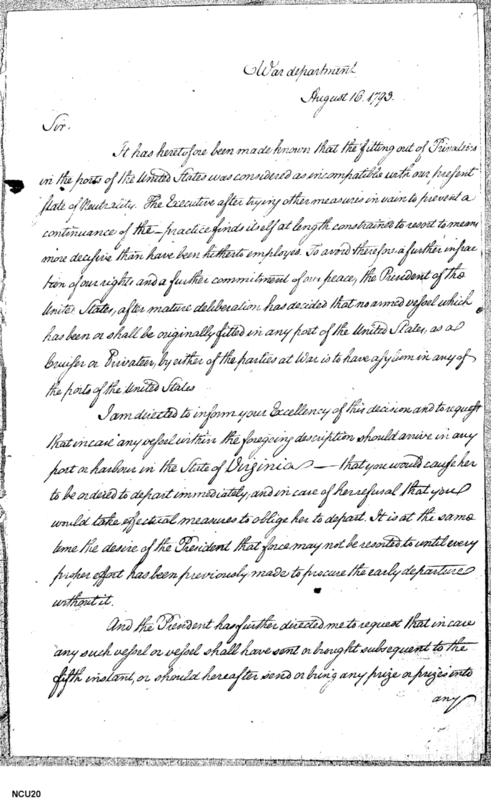 War department
August 16. 1793.
Sir.
It has heretofore been made known that the fitting out of Privateers
in the ports of the United States was considered as incompatible with our present
state of Neutrality. The Executive after trying other measures in vain to prevent a
continuance of the practice finds itself at length constrained to resort to means
more decisive than have been hitherto employed. To avoid therefore a further infrac
tion of our rights and a further commitment of our peace, the President of the
United States, after mature deliberation has decided that no armed vessel which
has been or shall be originally fitted in any port of the United States, as a
Cruiser or Privateer, by either of the parties at War is to have asylum in any of
the ports of the United States
I am directed to inform your Excellency of this decision and to request
that in case any vessel within the foregoing description should arrive in any
port or harbour in the State of Virginia — that you would cause her
to be ordered to depart immediately, and in case of her refusal that you
would take effectual measures to oblige her to depart. It is at the same
time the desire of the President that force may not be resorted to until every
proper effort has been previously made to procure the early departure
without it.
And the President has further directed me to request that in case
any such vessel or vessel shall have sent or brought subsequent to the
fifth instant, or should hereafter send or bring any prize or prizes into
any
NCU20